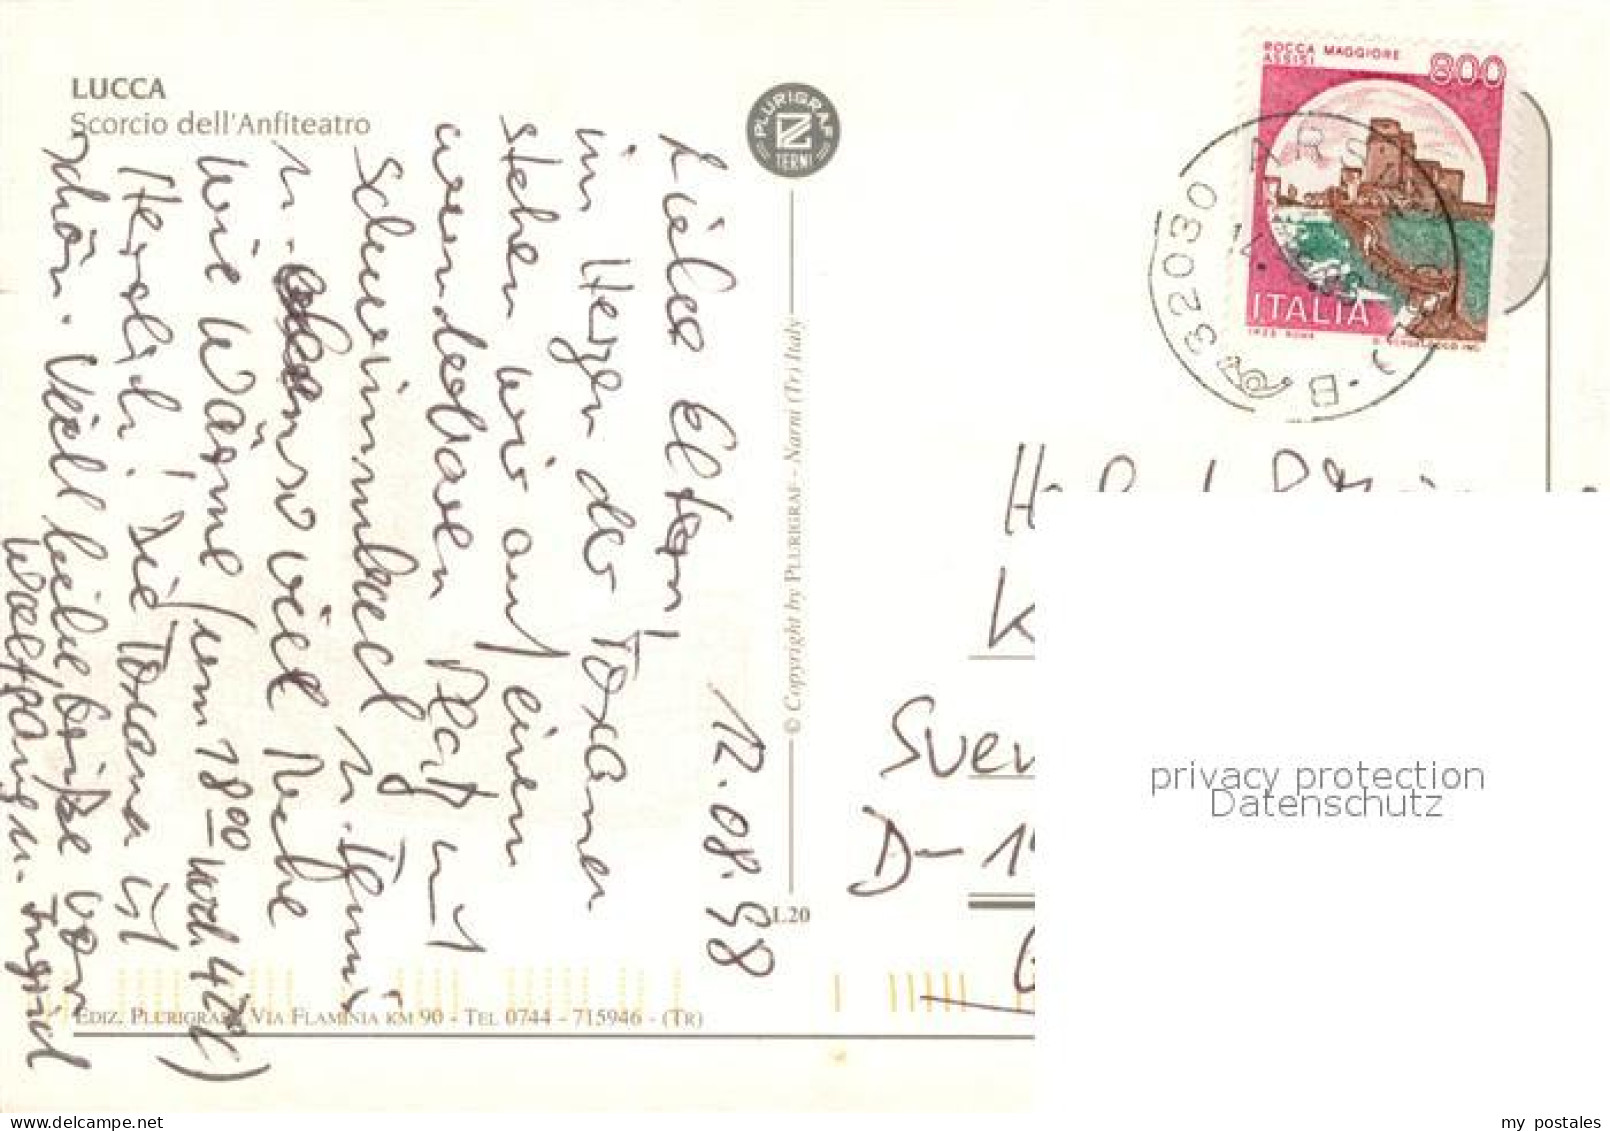 LUCCA
Scorcio dell'Anfiteatro
PLURIGRAF
TERNI
ROCCA MAGGIORE
ASSISI
800
ITALIA
32030
B
© Copyright by PLURIGRAF - Narni (Tr) Italy
L.20
12.08.98
Liebe Eltern!
im Herzen der Toscana
stehen wir auf einem
wunderbaren Platz mit
Schwimmbad u. Tennis
u. ebenso viel Ruhe
wie Wärme (um 18 00 noch 42°C)
Herrlich! Die Toscana ist
schön. Viel liebe Grüße von
Wolfgang u. Ingrid
K
Sven
D-1
EDIZ. PLURIGRAF VIA FLAMINIA KM 90 - TEL 0744 - 715946 - (TR)
privacy protection
Datenschutz
my postales